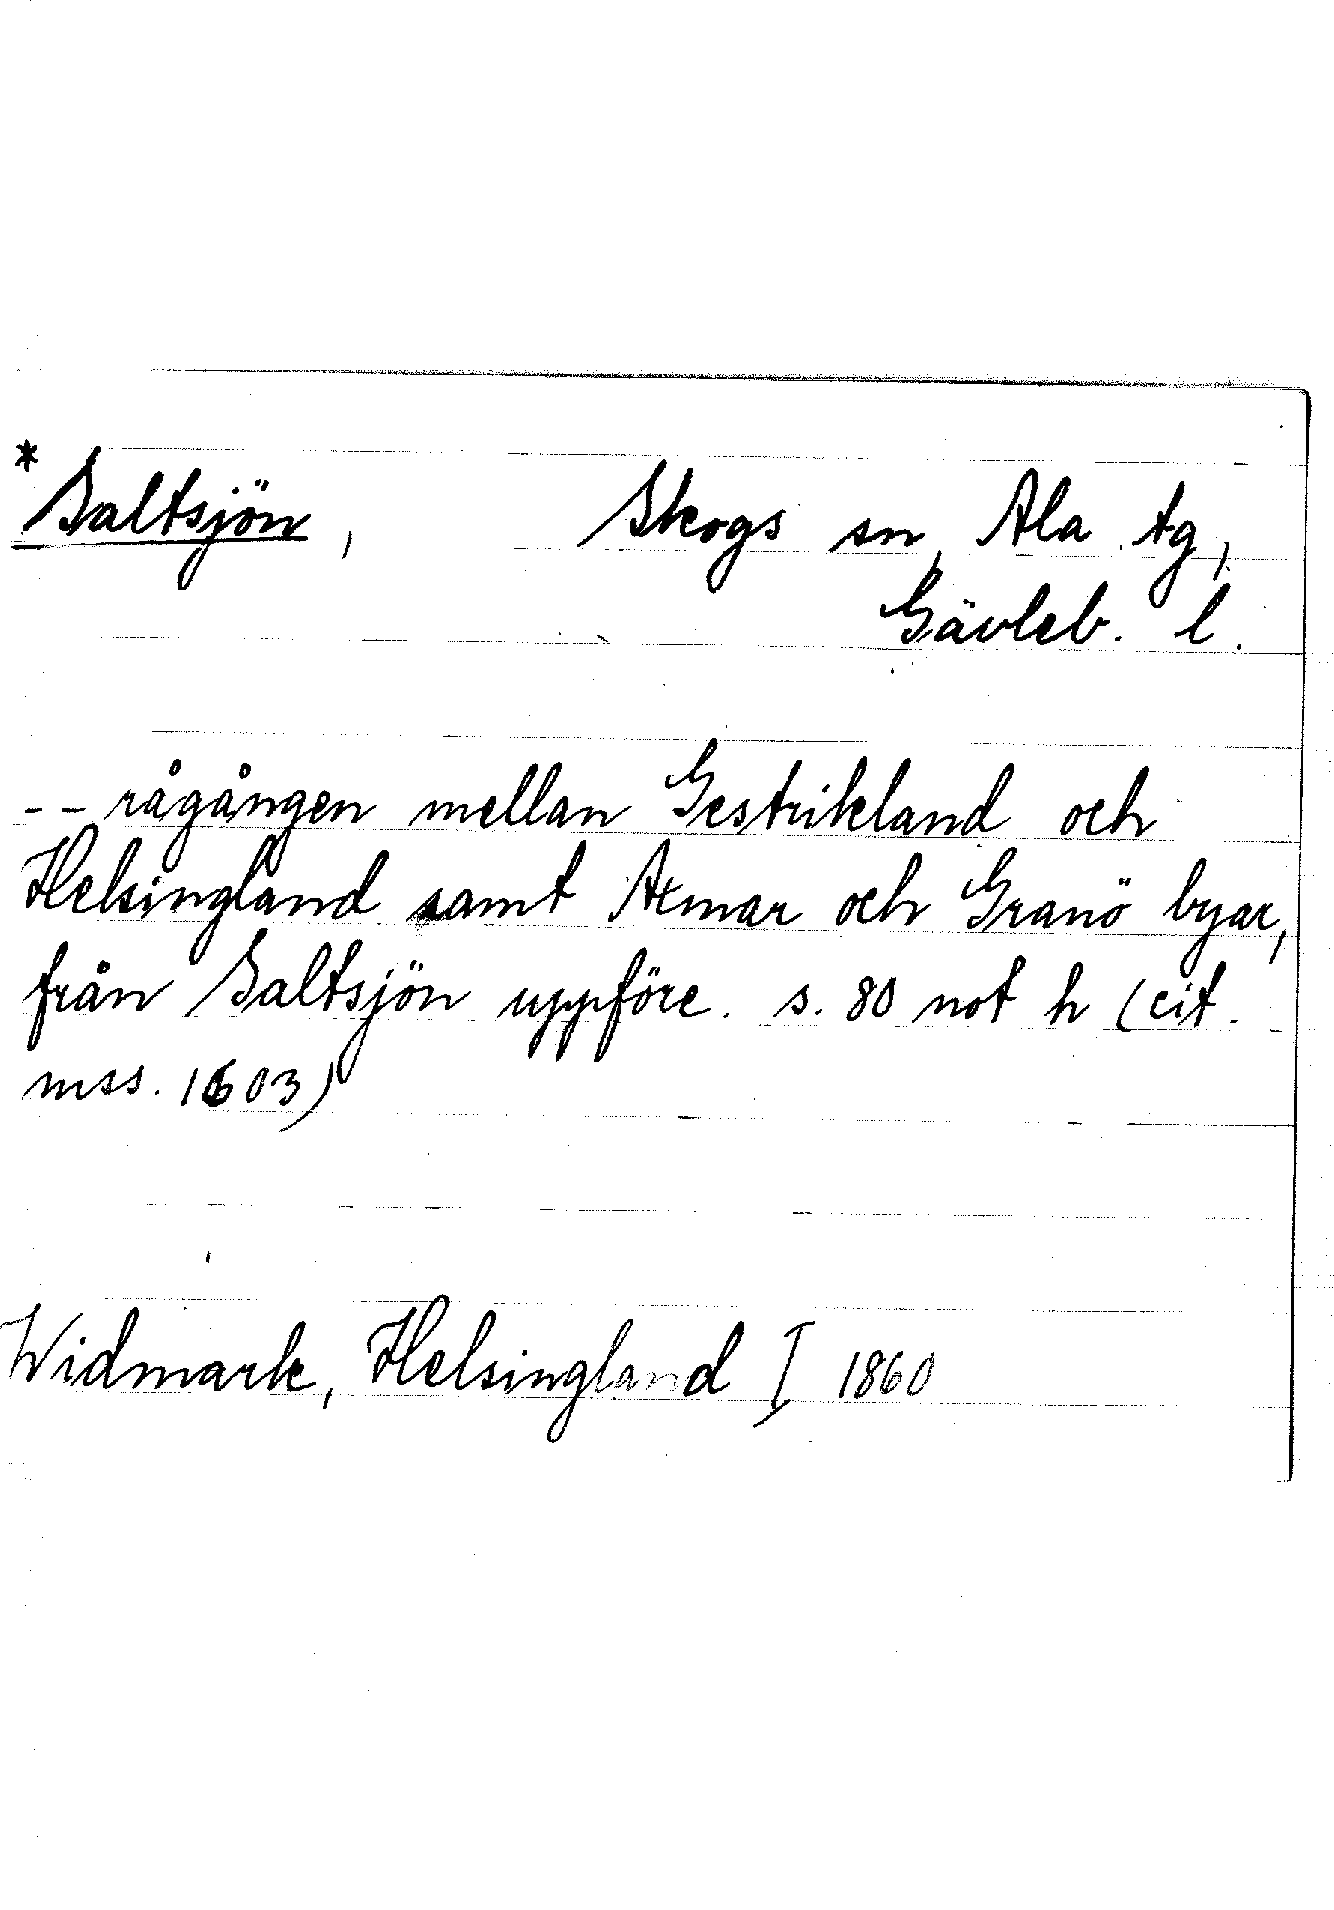 * Saltsjön, Skogs sn, Ala tg,
Gävleb. l.
-- rågången mellan Gestrikland och
Helsingland samt Axmar och Granö byar,
från Saltsjön uppföre. s. 80 not h (cit.
mss. 1603)
Widmark, Helsingland I 1860